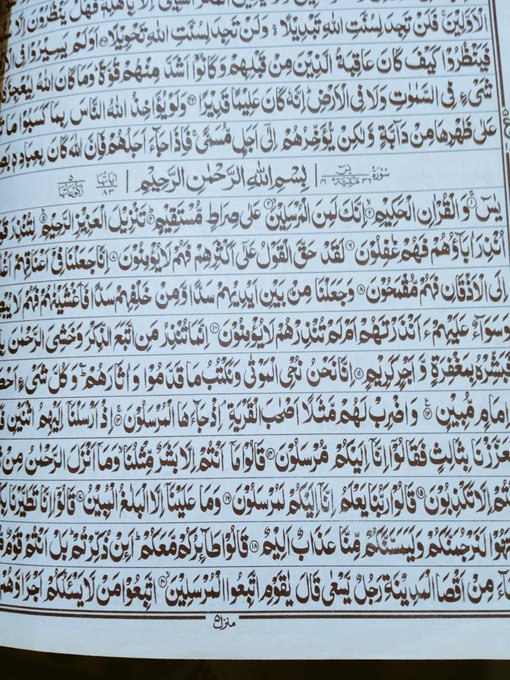 الْاَوَّلِيْنَ ۚ فَلَنْ تَجِدَ لِسُنَّتِ اللّٰهِ تَبْدِيْلًا ۚ وَلَنْ تَجِدَ لِسُنَّتِ اللّٰهِ تَحْوِيْلًا ۞ اَوَلَمْ يَسِيْرُوْا فِي
فَيَنْظُرُوْا كَيْفَ كَانَ عَاقِبَةُ الَّذِيْنَ مِنْ قَبْلِهِمْ وَكَانُوْٓا اَشَدَّ مِنْهُمْ قُوَّةً ؕ وَمَا كَانَ اللّٰهُ
شَيْءٍ فِي السَّمٰوٰتِ وَلَا فِي الْاَرْضِ ؕ اِنَّهٗ كَانَ عَلِيْمًا قَدِيْرًا ۞ وَلَوْ يُؤَاخِذُ اللّٰهُ النَّاسَ بِمَا كَسَبُوْا
عَلٰى ظَهْرِهَا مِنْ دَآبَّةٍ وَّلٰكِنْ يُّؤَخِّرُهُمْ اِلٰٓى اَجَلٍ مُّسَمًّى ۚ فَاِذَا جَآءَ اَجَلُهُمْ فَاِنَّ اللّٰهَ كَانَ بِعِبَادِهٖ
سُوْرَةُ يٰسٓ مَكِّيَّةٌ بِسْمِ اللّٰهِ الرَّحْمٰنِ الرَّحِيْمِ اٰيَاتُهَا ٨٣ رُكُوْعَاتُهَا ٥
يٰسٓ ۚ وَالْقُرْاٰنِ الْحَكِيْمِ ۙ اِنَّكَ لَمِنَ الْمُرْسَلِيْنَ ۙ عَلٰى صِرَاطٍ مُّسْتَقِيْمٍ ؕ تَنْزِيْلَ الْعَزِيْزِ الرَّحِيْمِ ۙ لِتُنْذِرَ
اُنْذِرَ اٰبَآؤُهُمْ فَهُمْ غٰفِلُوْنَ ۞ لَقَدْ حَقَّ الْقَوْلُ عَلٰٓى اَكْثَرِهِمْ فَهُمْ لَا يُؤْمِنُوْنَ ۞ اِنَّا جَعَلْنَا فِيْٓ اَعْنَاقِهِمْ
اِلَى الْاَذْقَانِ فَهُمْ مُّقْمَحُوْنَ ۞ وَجَعَلْنَا مِنْۢ بَيْنِ اَيْدِيْهِمْ سَدًّا وَّمِنْ خَلْفِهِمْ سَدًّا فَاَغْشَيْنٰهُمْ فَهُمْ لَا
وَسَوَآءٌ عَلَيْهِمْ ءَاَنْذَرْتَهُمْ اَمْ لَمْ تُنْذِرْهُمْ لَا يُؤْمِنُوْنَ ۞ اِنَّمَا تُنْذِرُ مَنِ اتَّبَعَ الذِّكْرَ وَخَشِيَ الرَّحْمٰنَ
فَبَشِّرْهُ بِمَغْفِرَةٍ وَّاَجْرٍ كَرِيْمٍ ۞ اِنَّا نَحْنُ نُحْيِ الْمَوْتٰى وَنَكْتُبُ مَا قَدَّمُوْا وَاٰثَارَهُمْ ؕ وَكُلَّ شَيْءٍ
اِمَامٍ مُّبِيْنٍ ۞ وَاضْرِبْ لَهُمْ مَّثَلًا اَصْحٰبَ الْقَرْيَةِ ۘ اِذْ جَآءَهَا الْمُرْسَلُوْنَ ۚ اِذْ اَرْسَلْنَآ اِلَيْهِمُ اثْنَيْنِ
فَعَزَّزْنَا بِثَالِثٍ فَقَالُوْٓا اِنَّآ اِلَيْكُمْ مُّرْسَلُوْنَ ۞ قَالُوْا مَآ اَنْتُمْ اِلَّا بَشَرٌ مِّثْلُنَا ۙ وَمَآ اَنْزَلَ الرَّحْمٰنُ مِنْ
اَنْتُمْ اِلَّا تَكْذِبُوْنَ ۞ قَالُوْا رَبُّنَا يَعْلَمُ اِنَّآ اِلَيْكُمْ لَمُرْسَلُوْنَ ۞ وَمَا عَلَيْنَآ اِلَّا الْبَلٰغُ الْمُبِيْنُ ۞ قَالُوْٓا اِنَّا تَطَيَّرْنَا
تَنْتَهُوْا لَنَرْجُمَنَّكُمْ وَلَيَمَسَّنَّكُمْ مِّنَّا عَذَابٌ اَلِيْمٌ ۞ قَالُوْا طَآئِرُكُمْ مَّعَكُمْ ؕ اَئِنْ ذُكِّرْتُمْ ؕ بَلْ اَنْتُمْ قَوْمٌ
مِنْ اَقْصَا الْمَدِيْنَةِ رَجُلٌ يَّسْعٰى قَالَ يٰقَوْمِ اتَّبِعُوا الْمُرْسَلِيْنَ ۙ اتَّبِعُوْا مَنْ لَّا يَسْئَلُكُمْ اَجْرًا وَّهُمْ
منزل ٥